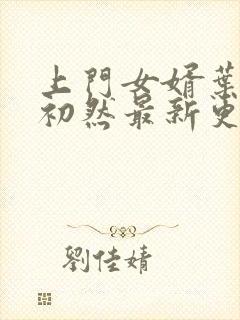 上門女婿葉
初然最新更
劉佳婧